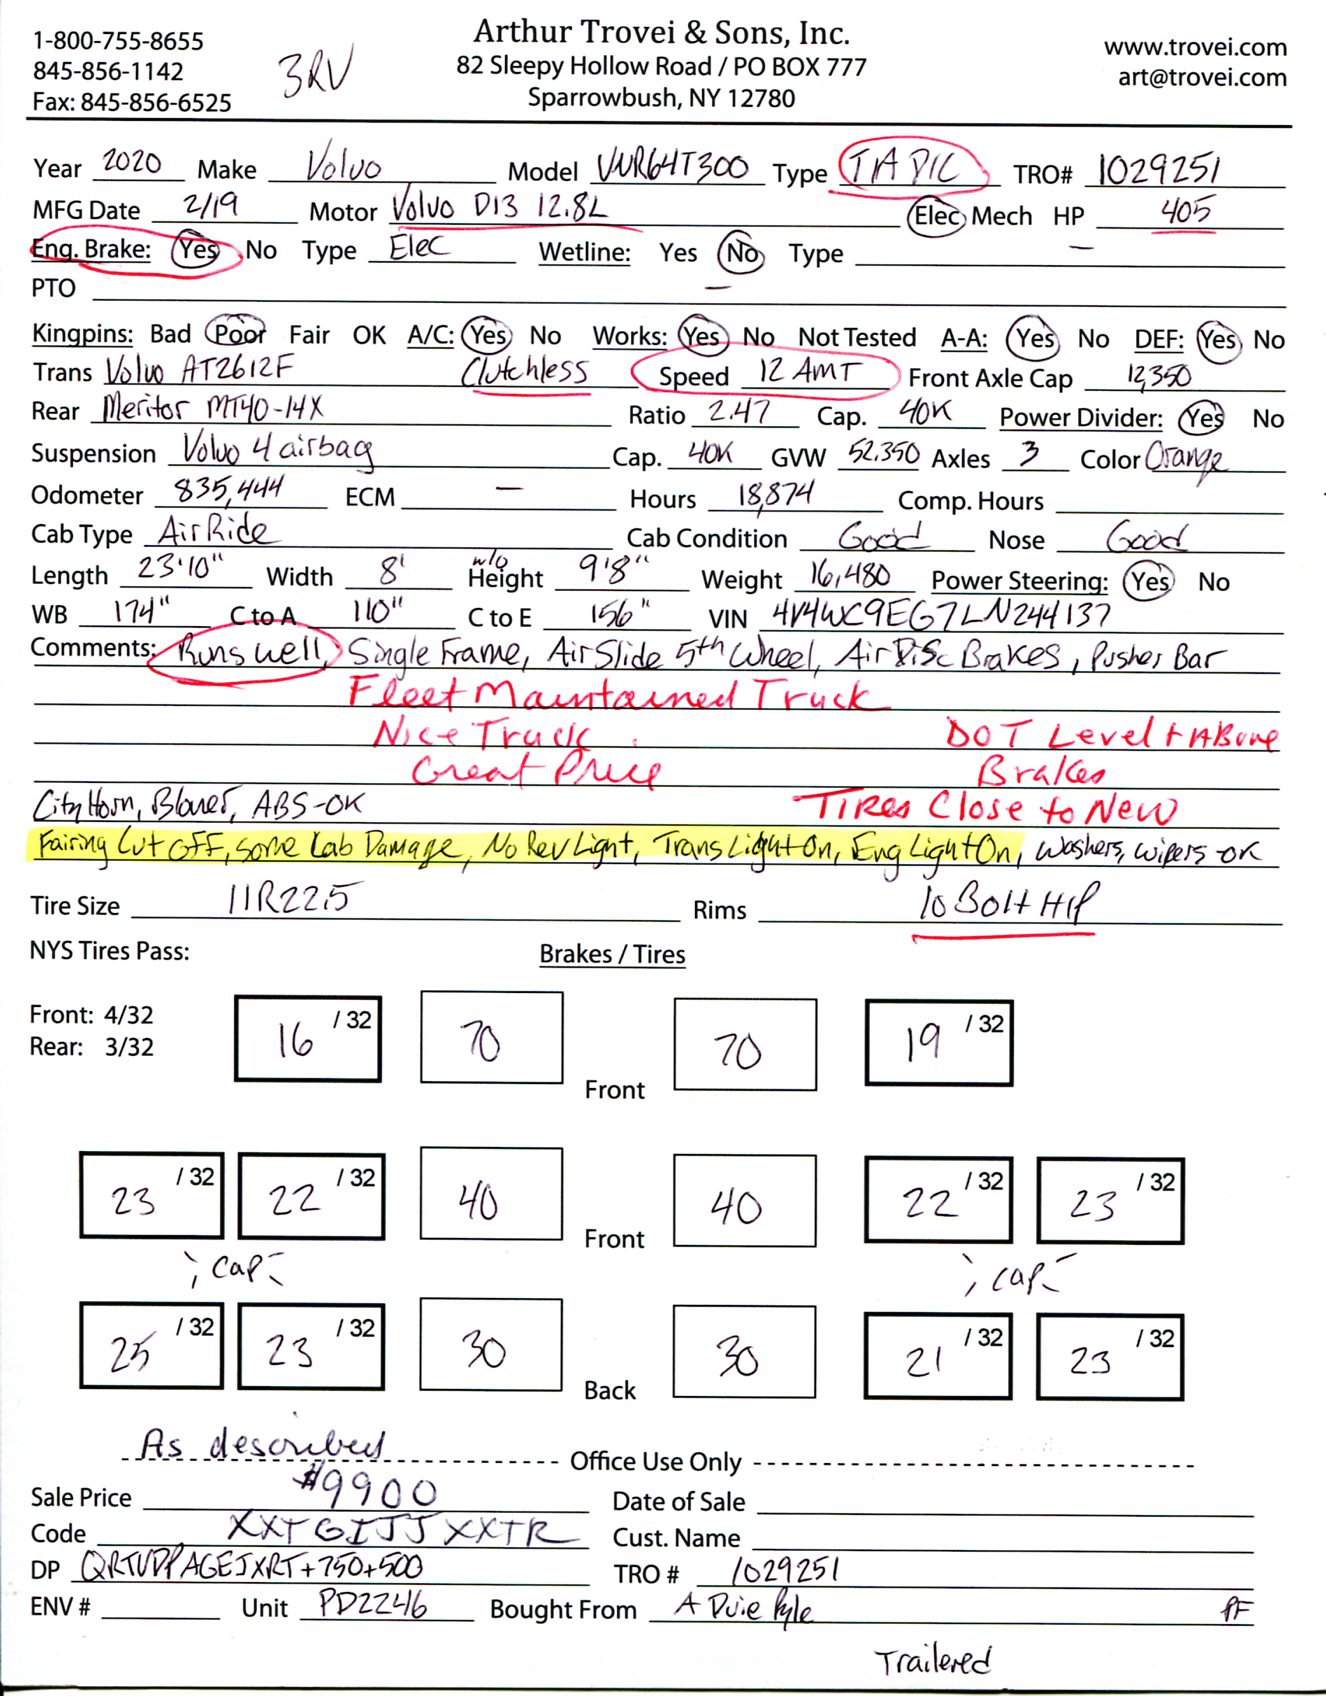 1-800-755-8655
845-856-1142
Fax: 845-856-6525
3RV
Arthur Trovei & Sons, Inc.
82 Sleepy Hollow Road / PO BOX 777
Sparrowbush, NY 12780
www.trovei.com
art@trovei.com
Year 2020 Make Volvo Model VNR64T300 Type T/A D/C TRO# 1029251
MFG Date 2/19 Motor Volvo D13 12.8L Elec Mech HP 405
Eng. Brake: Yes No Type Elec Wetline: Yes No Type —
PTO —
Kingpins: Bad Poor Fair OK A/C: Yes No Works: Yes No Not Tested A-A: Yes No DEF: Yes No
Trans Volvo AT2612F Clutchless Speed 12 AMT Front Axle Cap 12,350
Rear Meritor MT40-14X Ratio 2.47 Cap. 40K Power Divider: Yes No
Suspension Volvo 4 airbag Cap. 40K GVW 52,350 Axles 3 Color Orange
Odometer 835,444 ECM — Hours 18,874 Comp. Hours
Cab Type Air Ride Cab Condition Good Nose Good
Length 23'10" Width 8' w/o Height 9'8" Weight 16,480 Power Steering: Yes No
WB 174" C to A 110" C to E 156" VIN 4V4WC9EG7LN244137
Comments: Runs well, Single Frame, Air Slide 5th Wheel, Air Disc Brakes, Pusher Bar
Fleet Maintained Truck
Nice Truck DOT Level + Above
Great Price Brakes
City Horn, Blower, ABS-OK Tires Close to New
Fairing Cut off, some Cab Damage, No Rev Light, Trans Light On, Eng Light On, Washers, Wipers-OK
Tire Size 11R22.5 Rims 10 Bolt H/P
NYS Tires Pass: Brakes / Tires
Front: 4/32
Rear: 3/32
16 /32 70 Front 70 19 /32
23 /32 22 /32 40 Front 40 22 /32 23 /32
Cap Cap
25 /32 23 /32 30 Back 30 21 /32 23 /32
As described Office Use Only
Sale Price $9900 Date of Sale
Code XXTGIJJXXTR Cust. Name
DP QRTUDPAGEJXRT+750+500 TRO # 1029251
ENV # Unit PD2246 Bought From A Duie Pyle PF
Trailered